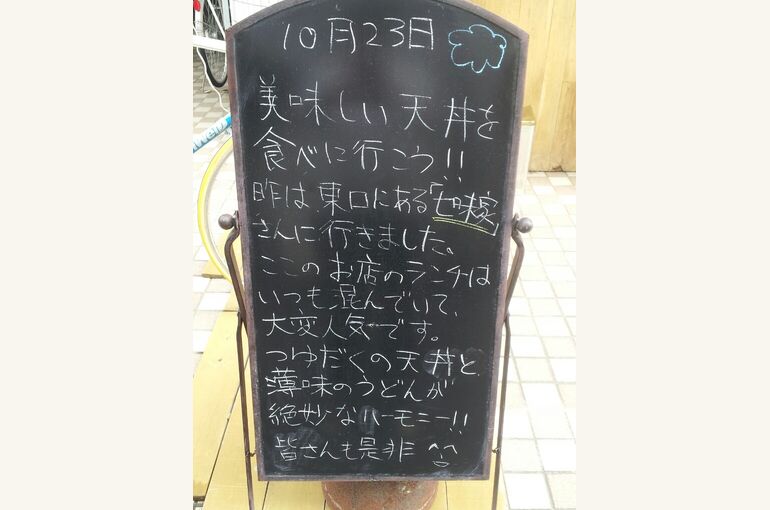 10月23日
美味しい天丼を
食べに行こう!!
昨は東口にある「七味家」
さんに行きました。
ここのお店のランチは
いつも混んでいて、
大変人気です。
つゆだくの天丼と、
薄味のうどんが
絶妙なハーモニー!!
皆さんも是非 ^^